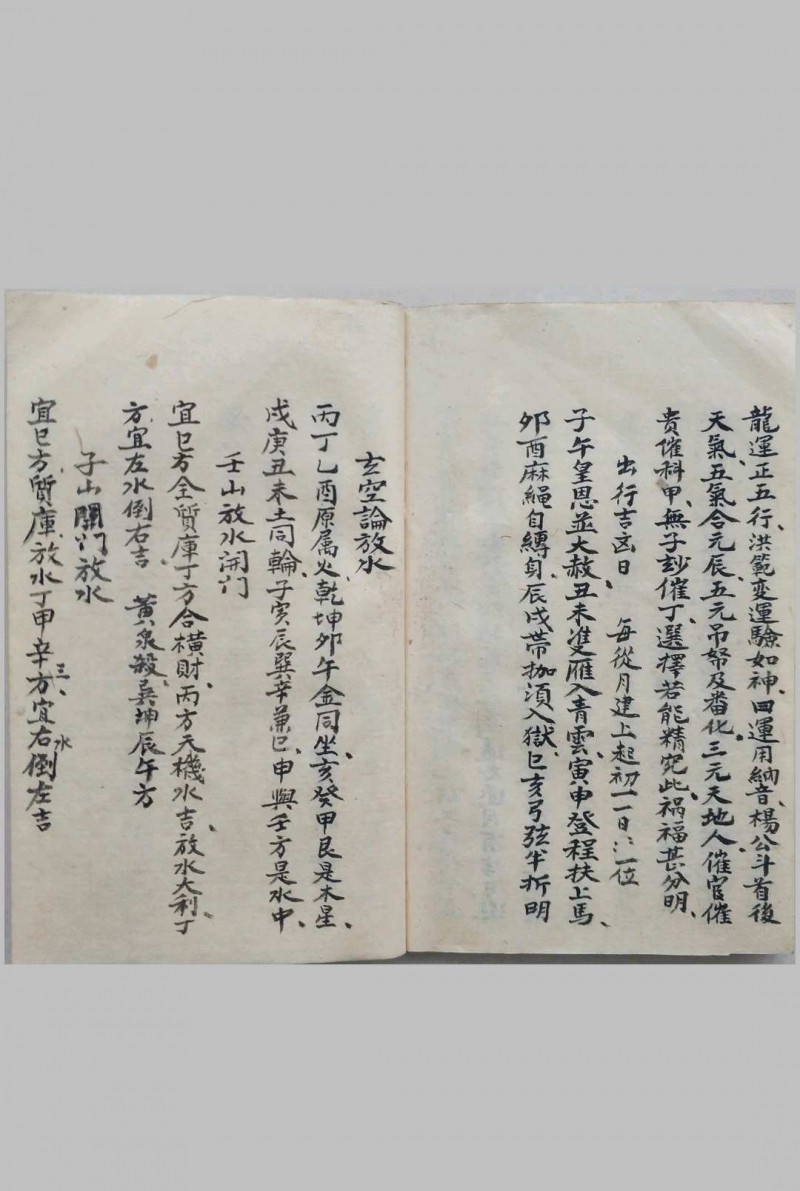 龍運正五行、洪範変運驗如神、田運用納音、楊公斗首後
天氣、五氣合元辰、五元吊帑及番化、三元天地人、催官催
貴催科甲、無子玅催丁、選擇若能精究此、禍福甚分明、
出行吉凶日 每從月建上起初一一日⺀一位
子午皇恩並大赦、丑未𨾏雁入青雲、寅申登程扶上馬、
夘酉麻縄自縛身、辰戌帯枷湏入獄、巳亥弓弦半折明
玄空論放水
丙丁乙酉原属火、乾坤卯午金同坐、亥癸甲艮是木星、
戌庚丑未土同輪、子寅辰巽辛兼巳、申與壬方是水中、
壬山放水開门
宜巳方全質庫丁方合橫財、丙方天機水吉、放水大利丁
方、宜左水倒右吉、 黄泉殺巽坤辰午方
子山開门放水
宜巳方質庫、放水丁甲辛三、方宜右水倒左吉